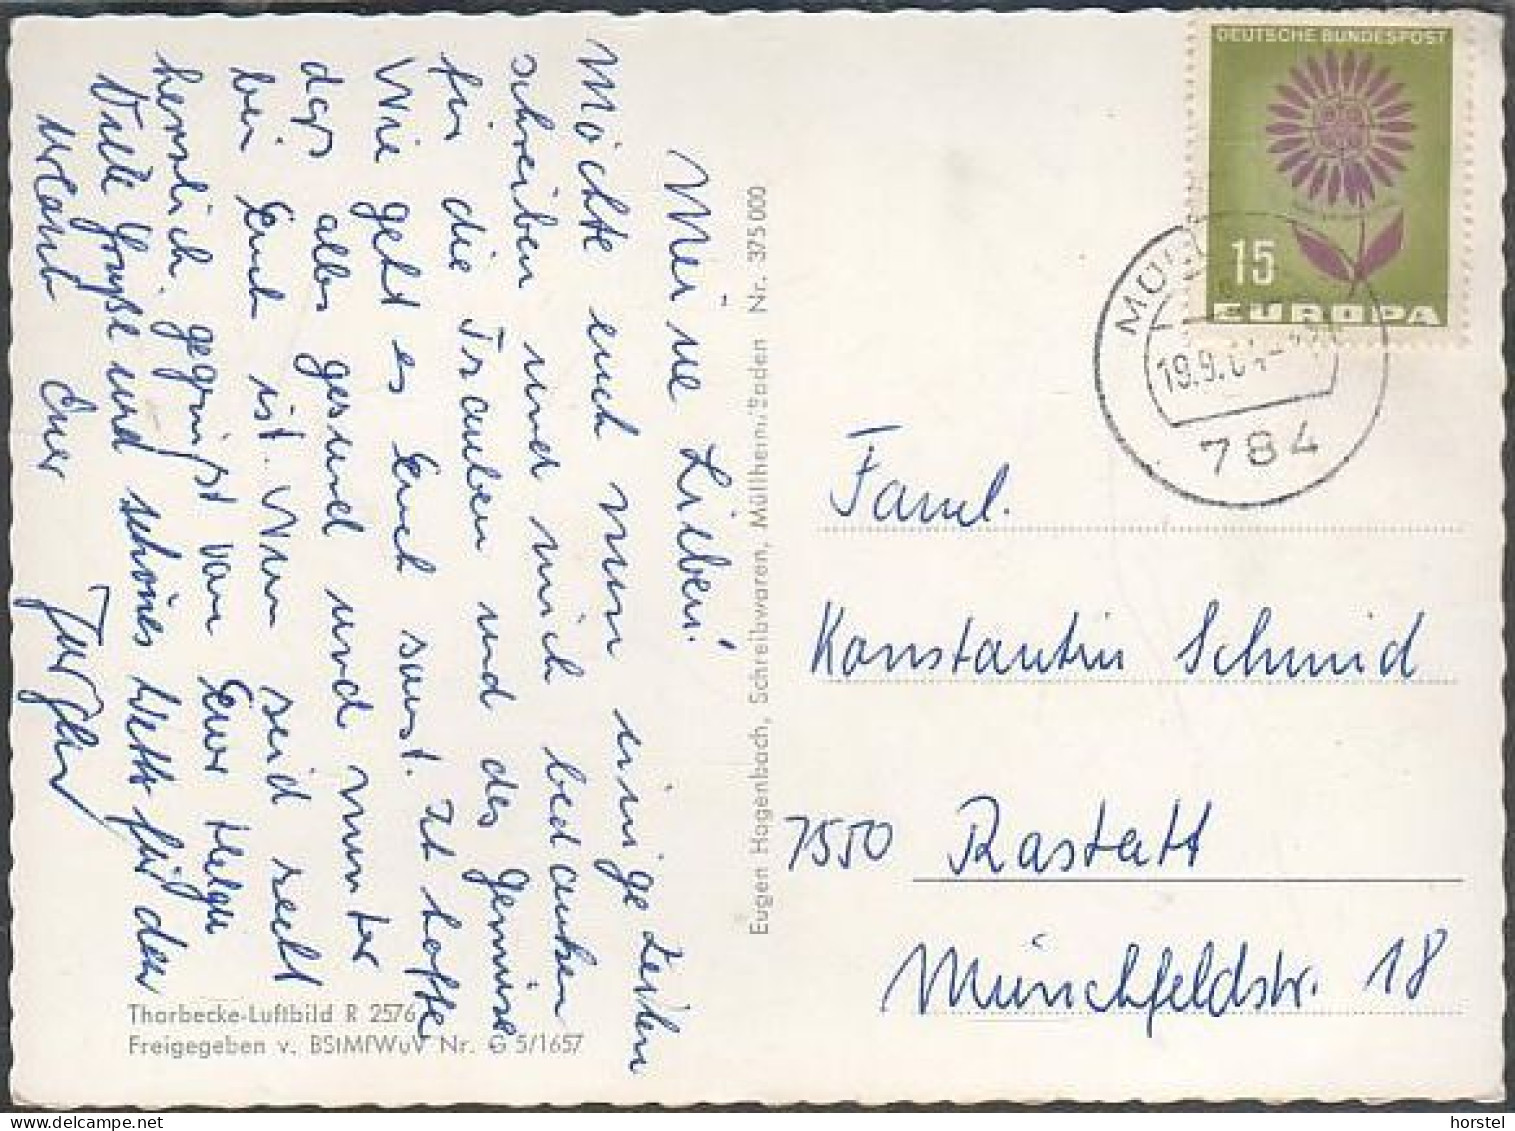 Meine Lieben!
Möchte euch nun einige Zeilen
schreiben und mich bedanken
für die Trauben und das Gemüse.
Wie geht es Euch sonst. Ich hoffe
dass alles gesund und munter
bei Euch ist. Nun seid recht
herzlich gegrüßt von Eurer Helga
Viele Grüße und schönes Wetter für den
Urlaub Euer
Thorbecke-Luftbild R 2576
Freigegeben v. BStMfWuV Nr. G 5/1657
Eugen Hagenbach, Schreibwaren, Müllheim/Baden Nr. 375000
DEUTSCHE BUNDESPOST
15
EUROPA
19.9.64
784
Faml.
Konstantin Schmid
7550 Rastatt
Münchfeldstr. 18
horstel